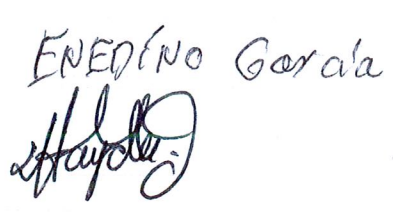 ENEDÍNO García